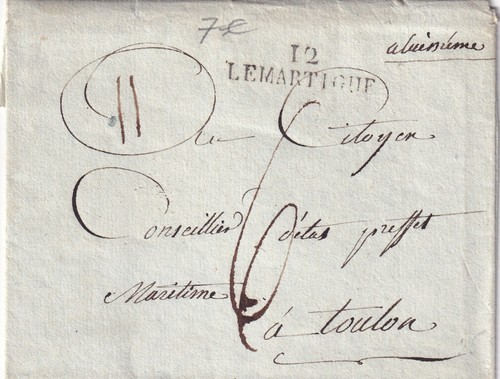 7 €
12
LEMARTIGUE
a lui même
11
Au Citoyen
6
Conseillier d'état preffet
Maritime
à toulon